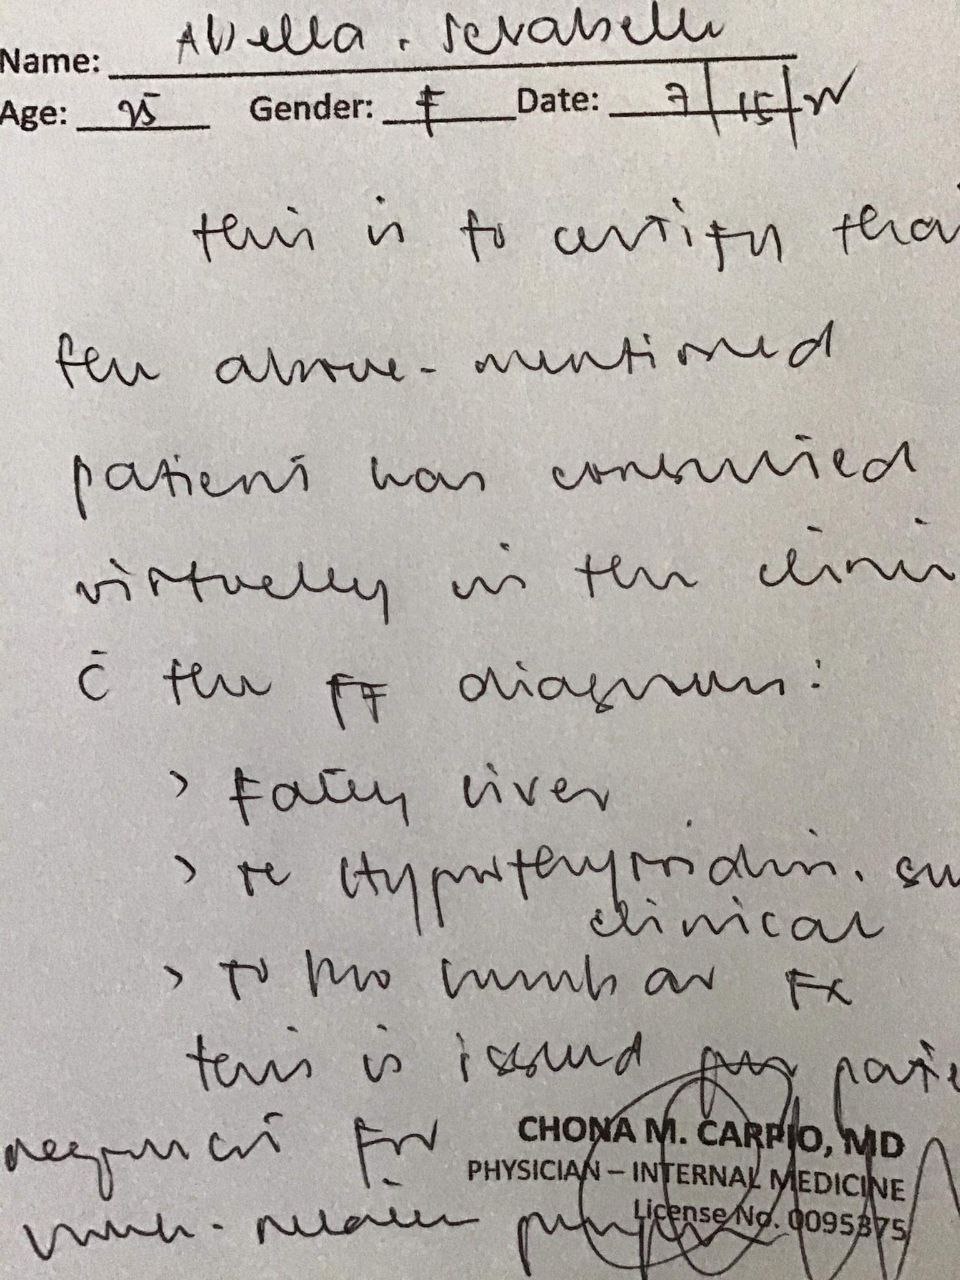 Name: Abella,
Age: 25 Gender: F Date: 7/15/
this is to certify that
the above-mentioned
patient has consulted
virtually in the clini
c̄ the ff diagnosis:
> Fatty liver
> Hypothyroidism, su
clinical
> lumbar Fx
this is issued per patie
request for
purpose
CHONA M. CARPIO, MD
PHYSICIAN – INTERNAL MEDICINE
License No. 0095375